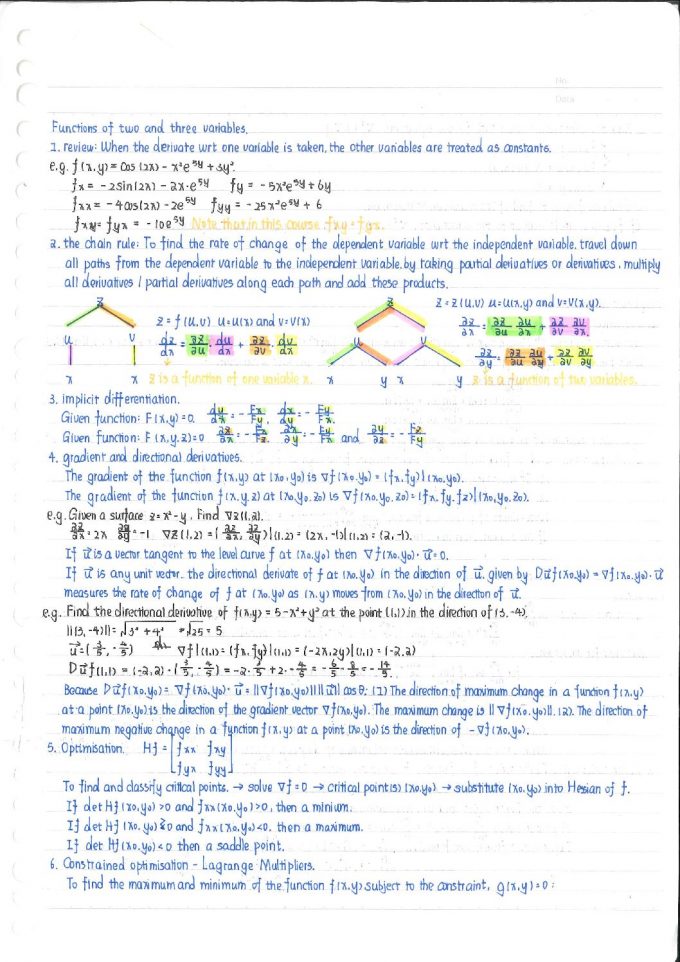 No.
Date
Functions of two and three variables.
1. review: When the derivate wrt one variable is taken, the other variables are treated as constants.
e.g. f(x,y) = cos(2x) - x²e^5y + 3y².
fx = -2sin(2x) - 2x·e^5y   fy = -5x²e^5y + 6y
fxx = -4cos(2x) - 2e^5y   fyy = -25x²e^5y + 6
fxy = fyx = -10e^5y Note that in this course fxy = fyx.
2. the chain rule: To find the rate of change of the dependent variable wrt the independent variable, travel down
all paths from the dependent variable to the independent variable, by taking partial derivatives or derivatives, multiply
all derivatives / partial derivatives along each path and add these products.
z   z = f(u,v) u=u(x) and v=v(x)
u v   dz/dx = ∂z/∂u · du/dx + ∂z/∂v · dv/dx
x x   z is a function of one variable x.
z   z = z(u,v) u=u(x,y) and v=v(x,y).
u v   ∂z/∂x = ∂z/∂u ∂u/∂x + ∂z/∂v ∂v/∂x
∂z/∂y = ∂z/∂u ∂u/∂y + ∂z/∂v ∂v/∂y
x y x y   z is a function of two variables.
3. implicit differentiation.
Given function: F(x,y)=0. dy/dx = - Fx/Fy, dx/dy = - Fy/Fx
Given function: F(x,y,z)=0 ∂z/∂x = - Fx/Fz, ∂x/∂y = - Fy/Fx and ∂y/∂z = - Fz/Fy
4. gradient and directional derivatives.
The gradient of the function f(x,y) at (x0,y0) is ∇f(x0,y0) = (fx,fy)|(x0,y0).
The gradient of the function f(x,y,z) at (x0,y0,z0) is ∇f(x0,y0,z0) = (fx,fy,fz)|(x0,y0,z0).
e.g. Given a surface z=x²-y, Find ∇z(1,2).
∂z/∂x = 2x ∂z/∂y = -1 ∇z(1,2) = (∂z/∂x, ∂z/∂y)|(1,2) = (2x,-1)|(1,2) = (2,-1).
If u⃗ is a vector tangent to the level curve f at (x0,y0) then ∇f(x0,y0)·u⃗=0.
If u⃗ is any unit vector, the directional derivate of f at (x0,y0) in the direction of u⃗, given by Du⃗f(x0,y0) = ∇f(x0,y0)·u⃗
measures the rate of change of f at (x0,y0) as (x,y) moves from (x0,y0) in the direction of u⃗.
e.g. Find the directional derivative of f(x,y) = 5-x²+y² at the point (1,1) in the direction of (3,-4).
||(3,-4)|| = √3²+4² = √25 = 5
u⃗=(3/5,-4/5)   ∇f|(1,1) = (fx,fy)|(1,1) = (-2x,2y)|(1,1) = (-2,2)
Du⃗f(1,1) = (-2,2)·(3/5,-4/5) = -2·3/5+2·-4/5 = -6/5-8/5 = -14/5
Because Du⃗f(x0,y0) = ∇f(x0,y0)·u⃗ = ||∇f(x0,y0)|| ||u⃗|| cosθ: (1) The direction of maximum change in a function f(x,y)
at a point (x0,y0) is the direction of the gradient vector ∇f(x0,y0). The maximum change is ||∇f(x0,y0)||. (2). The direction of
maximum negative change in a function f(x,y) at a point (x0,y0) is the direction of -∇f(x0,y0).
5. Optimisation. Hf = [fxx fxy
fyx fyy]
To find and classify critical points. → solve ∇f=0 → critical point(s) (x0,y0) → substitute (x0,y0) into Hessian of f.
If det Hf(x0,y0)>0 and fxx(x0,y0)>0, then a minium.
If det Hf(x0,y0)>0 and fxx(x0,y0)<0, then a maximum.
If det Hf(x0,y0)<0 then a saddle point.
6. Constrained optimisation - Lagrange Multipliers.
To find the maximum and minimum of the function f(x,y) subject to the constraint, g(x,y)=0: